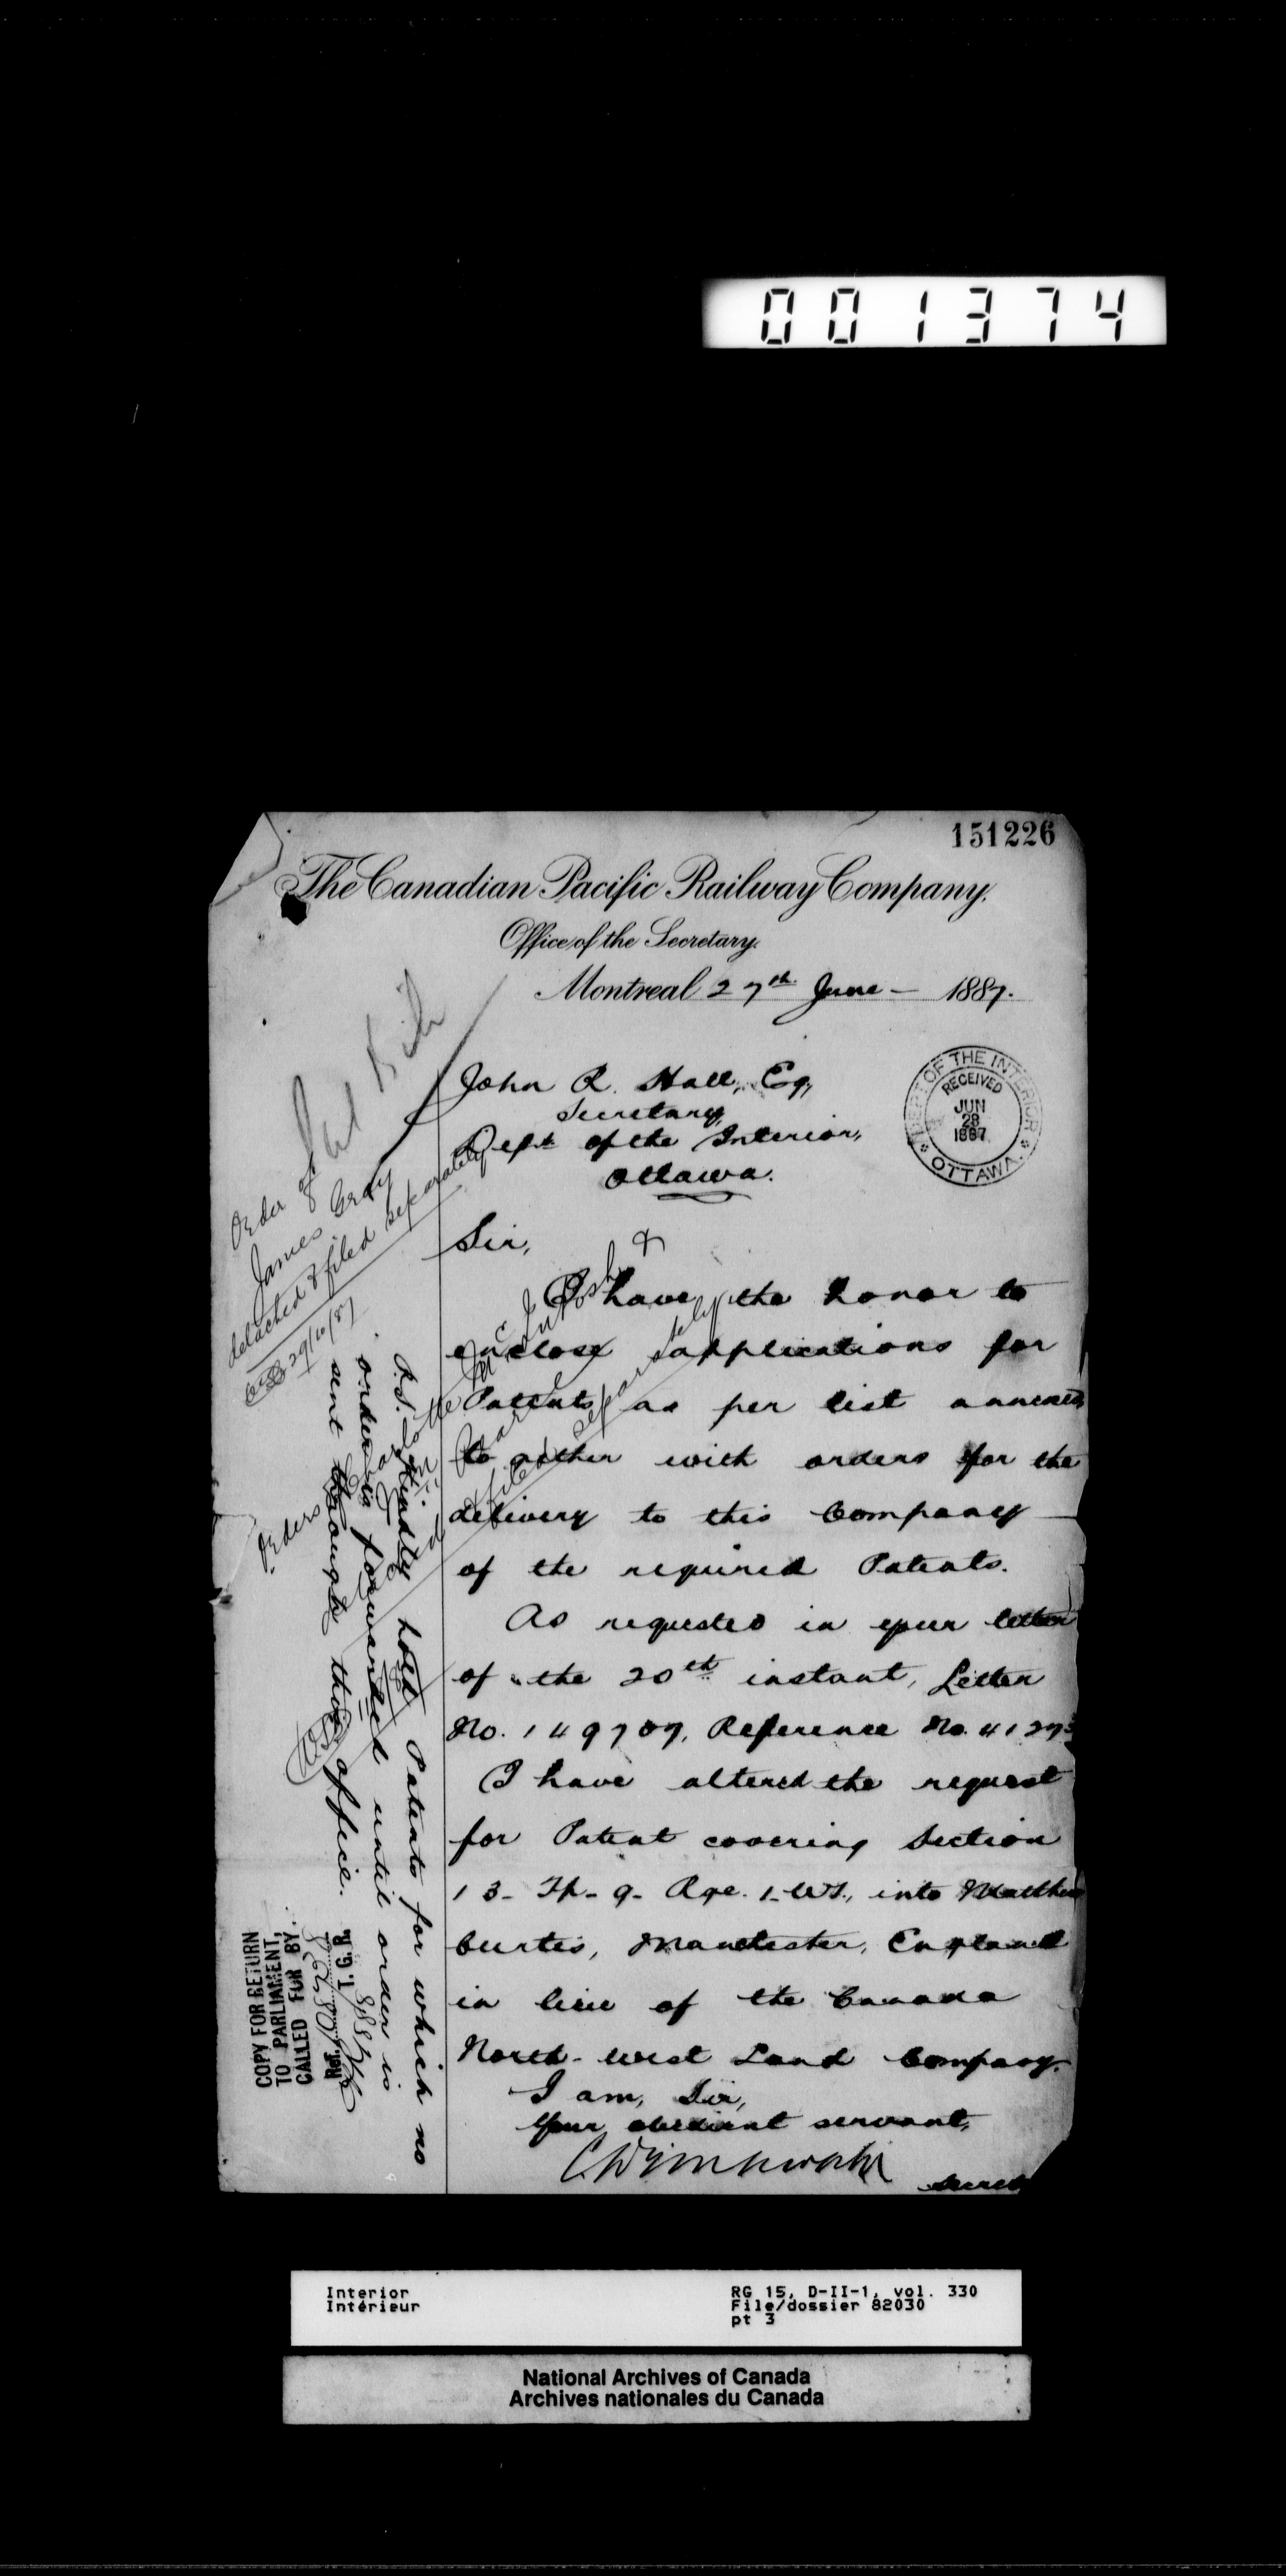 001374
151226
The Canadian Pacific Railway Company.
Office of the Secretary.
Montreal 27th June - 1887.
DEPT OF THE INTERIOR
RECEIVED
JUN
28
1887
OTTAWA.
John R. Hall, Esq,
Secretary,
Dept. of the Interior,
Ottawa.
Sir,
I have the honor to
enclose applications for
Patents as per list annexed
together with orders for the
delivery to this Company
of the required Patents.
As requested in your letter
of the 20th instant, Letter
No. 149707, Reference No. 41273
I have altered the request
for Patent covering Section
13- Tp- 9- Rge. 1- W1., into Matthew
Curtis, Manchester, England
in lieu of the Canada
North-west Land Company.
I am, Sir,
Your obedient servant,
C Drinkwater
Secret
Order of
James Gray
detached & filed separately
29/10/87
Orders
Charlotte McIntosh &
filed separately
P.S. Kindly hold Patents for which no
order is forwarded until order is
sent through this office.
COPY FOR RETURN
TO PARLIAMENT,
CALLED FOR BY
Ref.
T. G. R.
Interior
Intérieur
RG 15, D-II-1, vol. 330
File/dossier 82030
pt 3
National Archives of Canada
Archives nationales du Canada